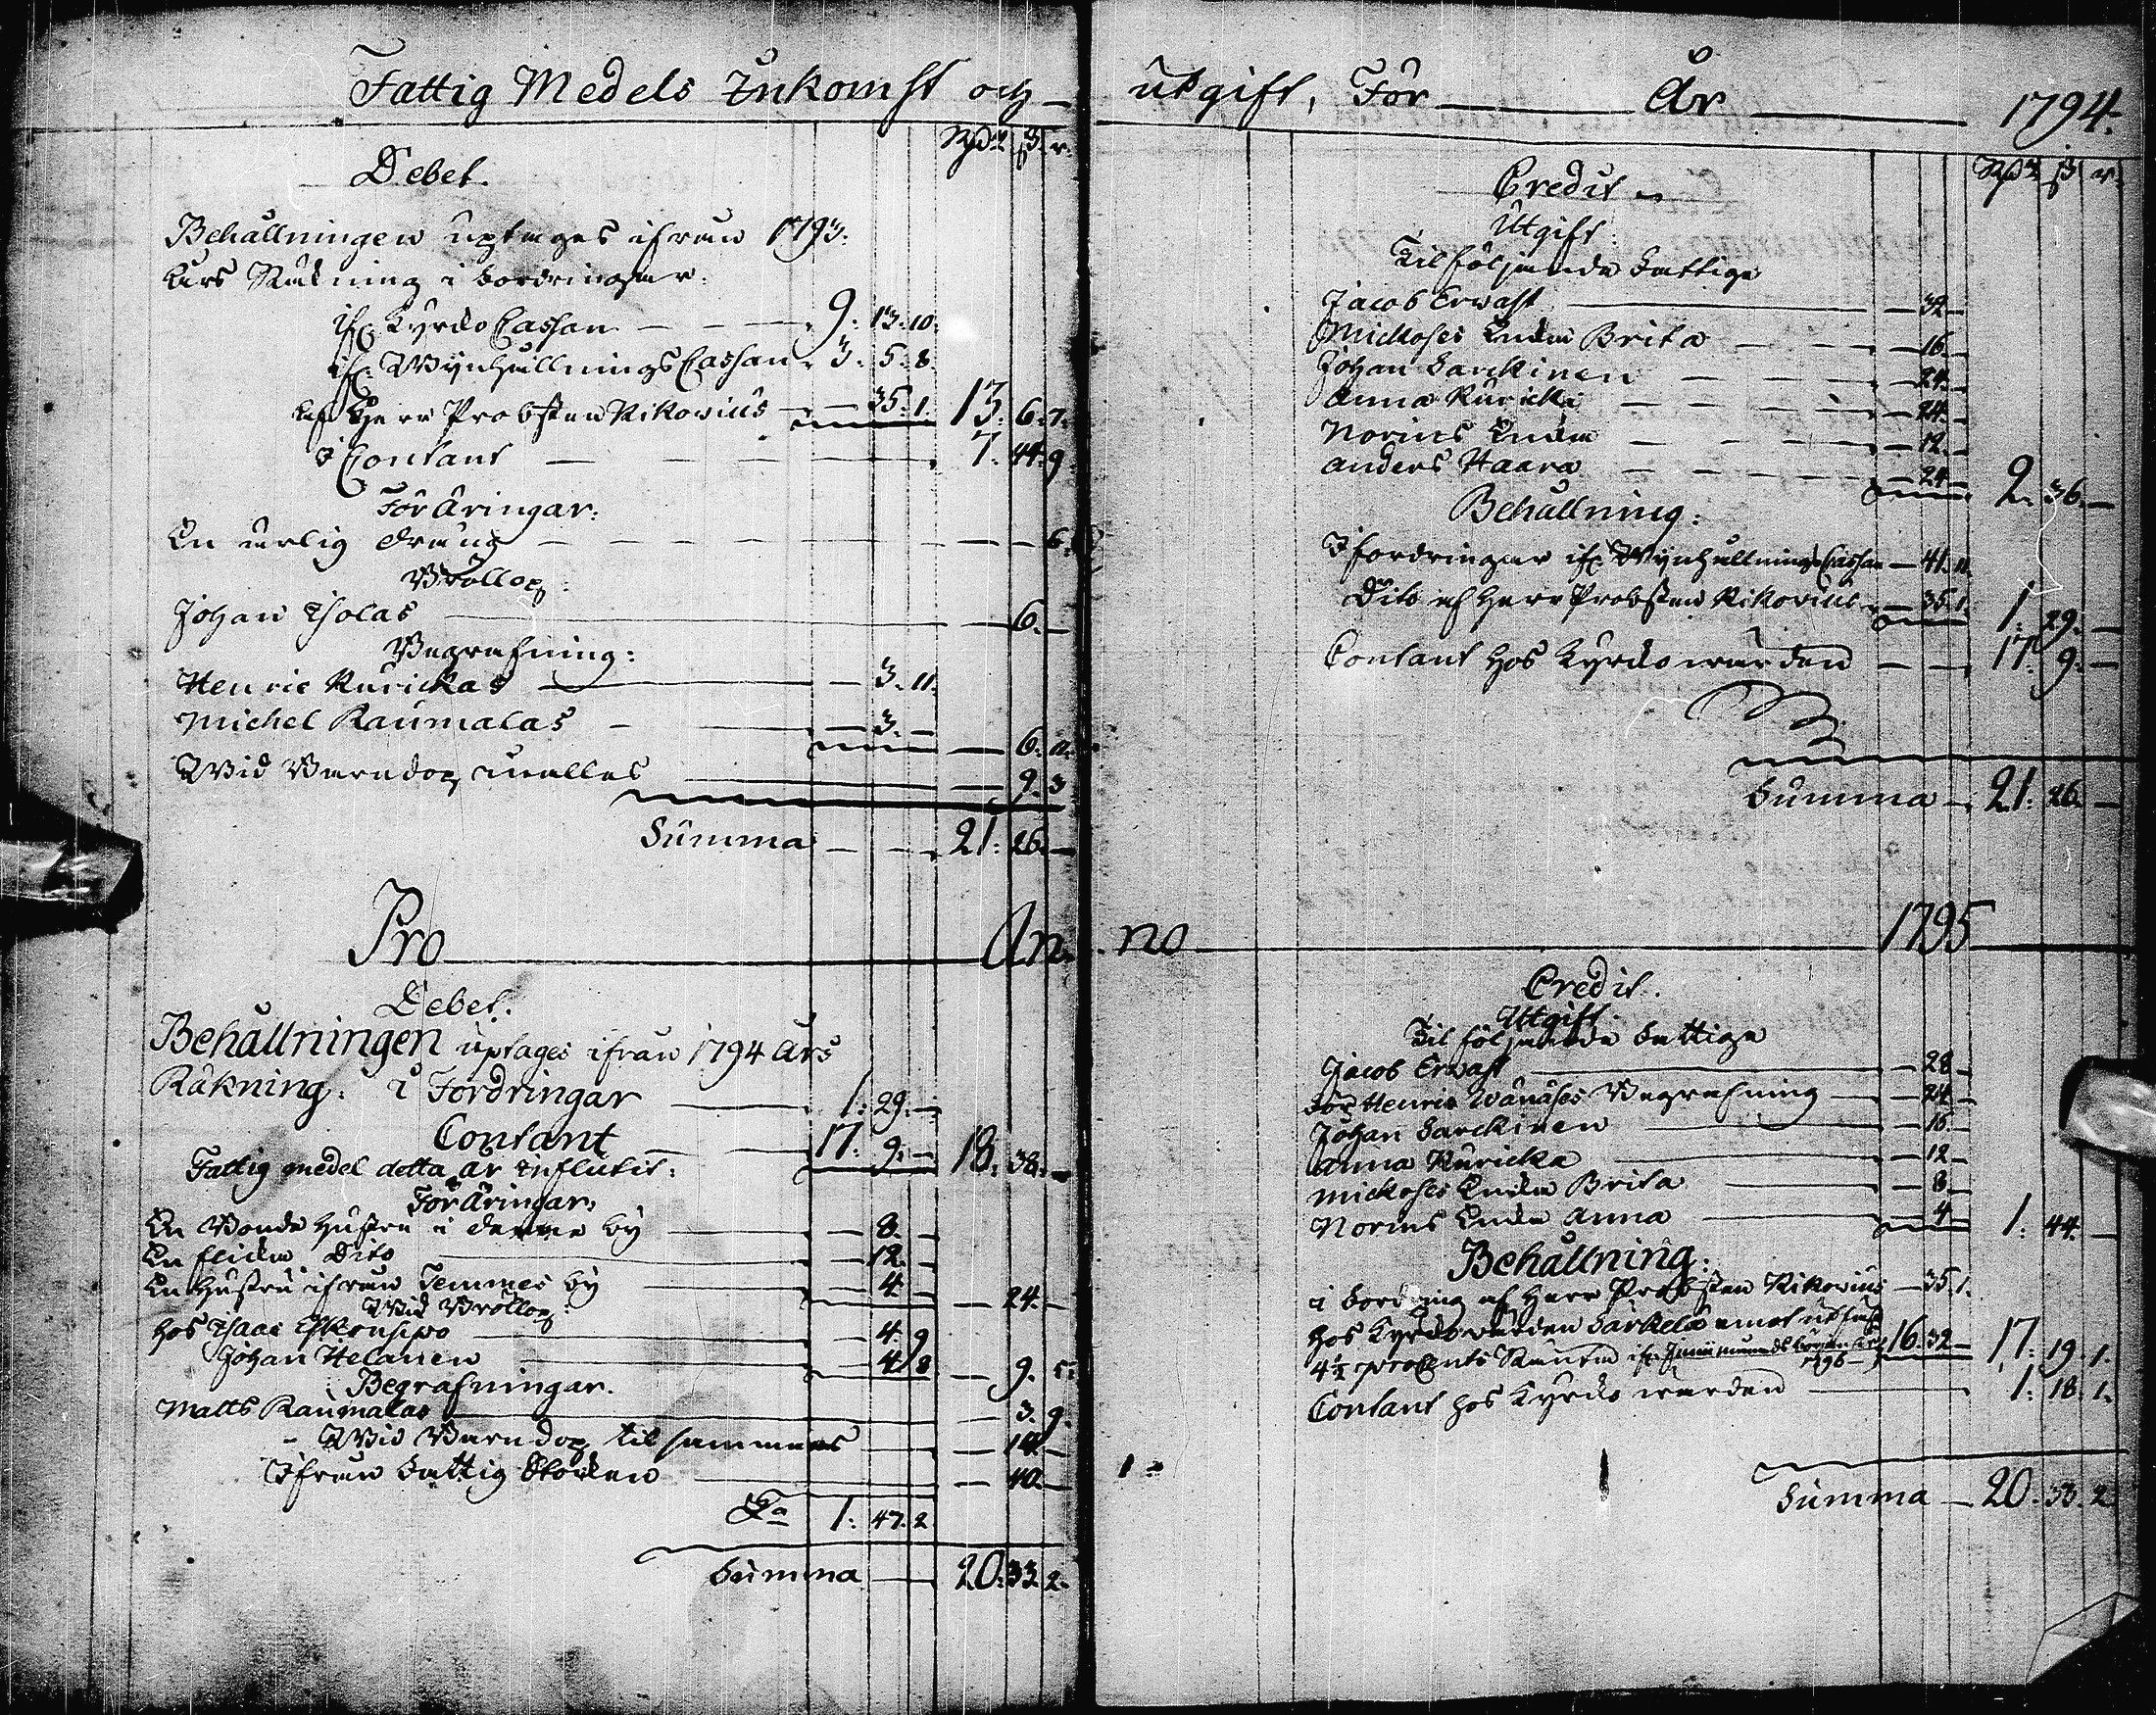 Fattig Medels Inkomst och utgift, För År 1794.
Rd:r ß r:
Debet.
Behållningen uptages ifrån 1793:
Års Räkning i Fordringar:
if: Kyrko Cassan 9: 13: 10.
if: Mjnhållnings Cassan 3: 5: 8.
af Herr Probsten Rikorius 35: 1. 13: 6: 7.
I Contant 7: 44: 9
Föräringar:
En ärlig dräng 6.
Bröllop:
Johan Isolas 6.
Begrafning:
Henric Kurickas 3. 11.
Michel Raumalas 3. 6. 11.
Wid Barndop inalles 9. 3
Summa 21: 26.
Credit
Rd:r ß r:
Utgift
Til följande Fattige
Jacob Erwast 32
Mickoses Enka Brita 16
Johan Sarckinen 24
Anna Kuricka 24
Norins Enka 12
Anders Haara 24 2. 36.
Behållning:
I fordringar if: Mjnhållnings Cassan 41. 11.
Dito af Herr Probsten Rikorius 35. 1. 1: 29.
Contant hos Kyrkowärden 17: 9.
Summa 21: 26.
Pro Anno 1795
Debet.
Behållningen uptages ifrån 1794 Års
Räkning: i Fordringar 1: 29.
Contant 17: 9. 18: 38.
Fattig medel detta år influtit:
Föräringar:
En Bonde Hustru i denne by 8.
En flicka Dito 12.
En Hustru ifrån Temmes by 4 24.
Wid Bröllop:
hos Isaac 4. 9
Johan Helanen 4. 8 9. 5.
Begrafningar.
Matts Raumalas 3. 9.
Wid Barndop tilsammans 18.
Ifrån Fattig Stocken 40.
Tra 1: 47. 2.
Summa 20: 33. 2.
Credit.
Utgift
Til följande Fattige
Jacob Erwast 28
För Henric Wänäses Begrafning 24
Johan Sarckinen 16
Anna Kuricka 12
Mickoses Enka Brita 8
Norins Enka Anna 4 1: 44.
Behållning:
i Fordring af Herr Probsten Rikorius 35. 1.
hos Kyrkowärden Särkelä emot utfäst
4½ procents Ränta if: 1796 16. 32 17: 19. 1.
Contant hos Kyrkowärden 1: 18. 1.
Summa 20: 33. 2